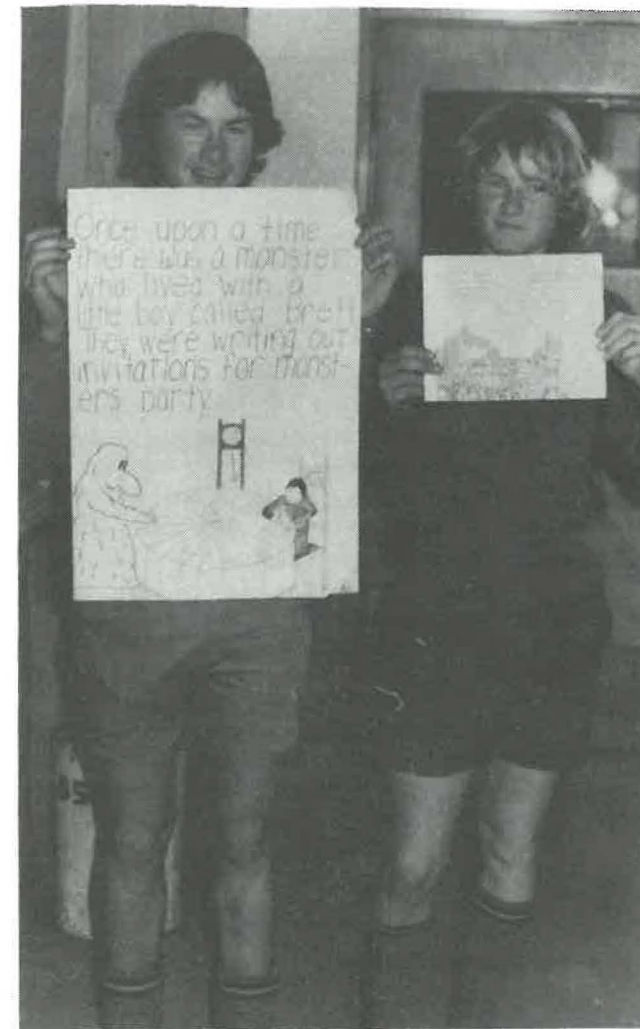 Once upon a time
there was a monster
who lived with a
little boy called Brett
They were writing out
invitations for monst-
ers party.